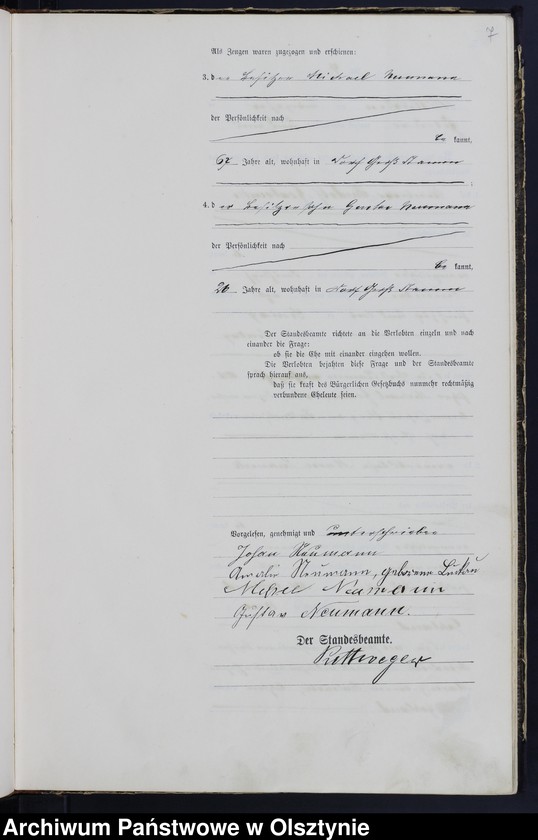 7
Als Zeugen waren zugezogen und erschienen:
3. der Besitzer Michael Neumann
der Persönlichkeit nach
be kannt,
67 Jahre alt, wohnhaft in Dorf Groß
4. der Besitzersohn Gustav Neumann
der Persönlichkeit nach
be kannt,
26 Jahre alt, wohnhaft in Dorf Groß
Der Standesbeamte richtete an die Verlobten einzeln und nach
einander die Frage:
ob sie die Ehe mit einander eingehen wollen.
Die Verlobten bejahten diese Frage und der Standesbeamte
sprach hierauf aus,
daß sie kraft des Bürgerlichen Gesetzbuchs nunmehr rechtmäßig
verbundene Eheleute seien.
Vorgelesen, genehmigt und unterschrieben
Johan Neumann
Amalie Neumann, geborene
Neumann
Gustav Neumann.
Der Standesbeamte.
Archiwum Państwowe w Olsztynie